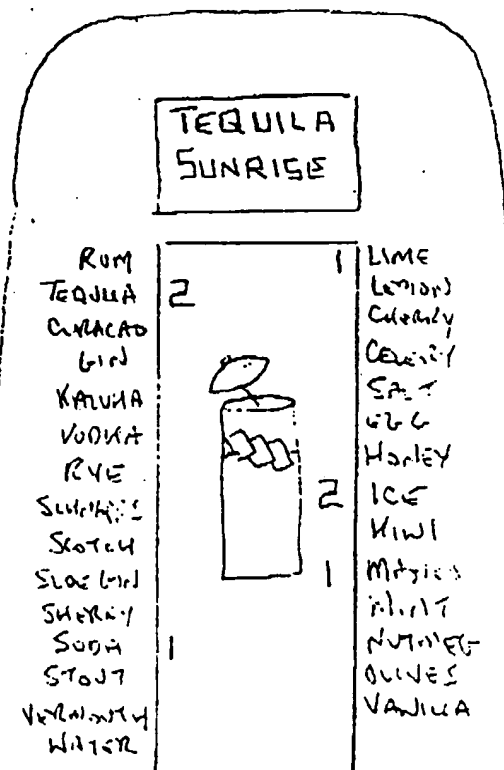 TEQUILA
SUNRISE
RUM
TEQUILA 2
CURACAO
GIN
KALUHA
VODKA
RYE
SCOTCH
SLOE GIN
SHERRY
SODA 1
STOUT
VERMOUTH
WATER
1 LIME
LEMON
CHERRY
CELERY
SALT
EGG
HONEY
2 ICE
KIWI
1
MINT
NUTMEG
OLIVES
VANILLA